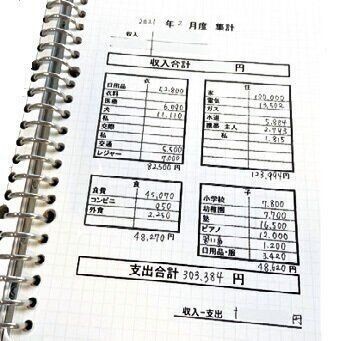 2021 年 2 月度 集計
収入
収入合計 円
衣
日用品 52,800
衣料
医療 6,090
犬 11,110
私
交際
私
交通 5,500
レジャー 7,000
82500 円
住
家 100,000
電気 13,502
ガス
水道 5,884
携帯 主人 2,743
私 1,815
123,944 円
食
食費 45,070
コンビニ 950
外食 2,250
48,270 円
子
小学校 7,800
幼稚園 7,700
塾 16,500
ピアノ 12,000
習い事 1,200
日用品・服 3,420
48,620 円
支出合計 303,384 円
収入ー支出 円